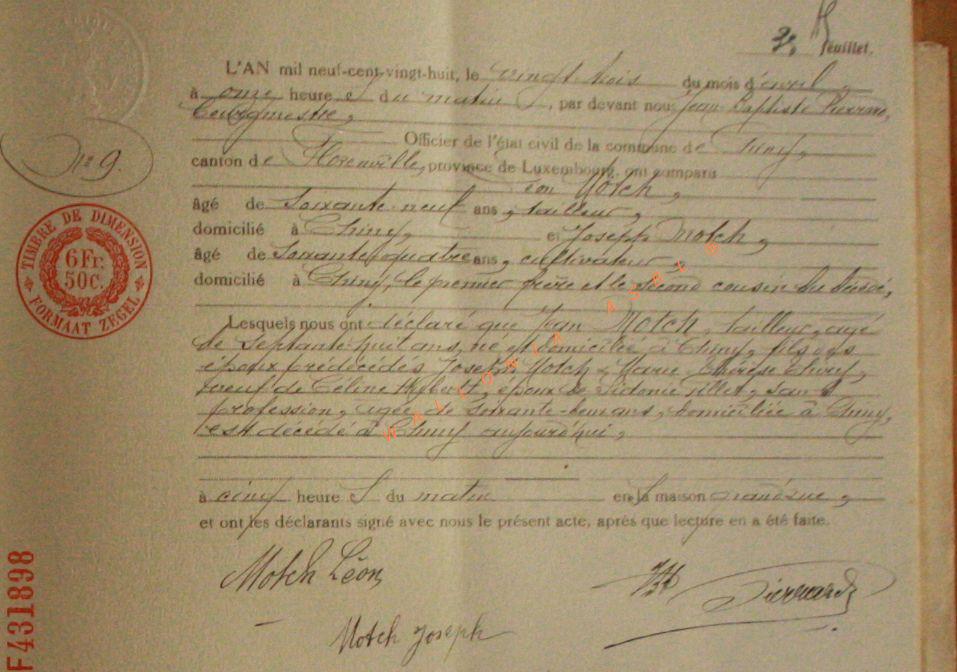 2e feuillet.
L'AN mil neuf-cent-vingt-huit, le vingt trois du mois d'avril
à onze heure s du matin, par devant nous Jean Baptiste Pierrard,
bourgmestre,
Officier de l'état civil de la commune de Chiny,
N° 9.
canton de Florenville, province de Luxembourg, ont comparu
Léon Motch,
âgé de soixante neuf ans, tailleur,
domicilié à Chiny, et Joseph Motch,
âgé de soixante quatre ans, cultivateur,
domicilié à Chiny, le premier frère et le second cousin du décédé,
TIMBRE DE DIMENSION
6 Fr.
50C.
FORMAAT ZEGEL
Lesquels nous ont déclaré que Jean Motch, tailleur, agé
de septante huit ans, né et domicilié à Chiny, fils des
époux prédécédés Joseph Motch & Marie Thérèse,
veuf de Céline Hubert, époux de Sidonie, sans
profession, agée de soixante ans, domiciliée à Chiny,
est décédé à Chiny aujourd'hui,
à cinq heure s du matin en sa maison,
et ont les déclarants signé avec nous le présent acte, après que lecture en a été faite.
Motch Léon
Pierrard
Motch Joseph
F431898